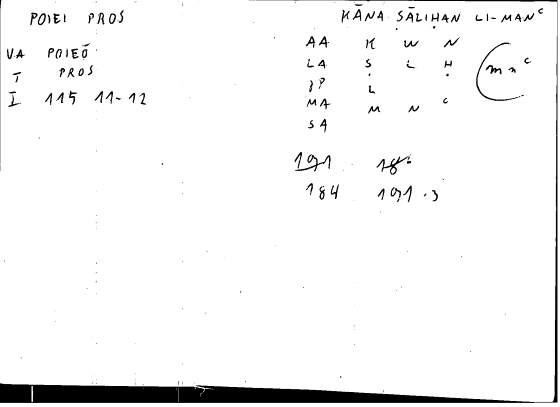 POIEI PROS
VA POIEŌ
T PROS
I 115 11-12
KĀNA ṢĀLIḤAN LI-MANᶜ
AA K W N
LA Ṣ L Ḥ
L
MA M N ᶜ
SA
(mnᶜ
191 18.
184 191.3